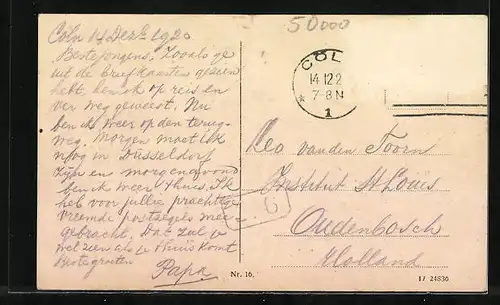 Cöln 14 Dec. 1920
Beste jongens, Zooals ge
uit de briefkaarten gezien
hebt, ben ik op reis en
ver weg geweest. Nu
ben ik weer op den terug-
weg. Morgen moet ik
nog in Düsseldorf
zijn en morgenavond
ben ik weer thuis. Ik
heb voor jullie prachtige
vreemde postzegels mee-
gebracht. Dat zul u
wel zien als u thuis komt
Beste groeten
Papa
50000
CÖL
14.12.2
* 7-8 N
1
Leo van den Toorn
Instituut St Louis
Oudenbosch
Holland
Nr. 16.
17 24836